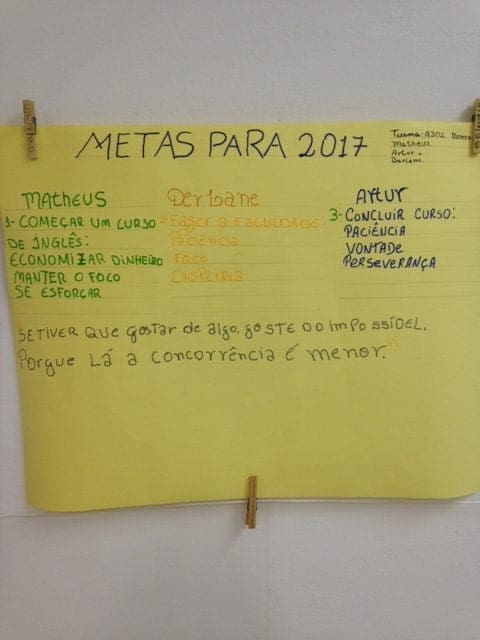 METAS PARA 2017
Turma: A302 Nomes
Matheus
Artur e
Darlane.
MatHeUS
1- COMEÇAR UM CURSO
DE INGLÊS:
ECONOMIZAR DINHEIRO
MANTER O FOCO
SE ESFORÇAR
Derlane
2- Fazer a FACULDADE:
Paciência
Foco
Diciplina
Artur
3- CONCLUIR CURSO:
PACIÊNCIA
VONTADe
PERSEVERANÇA
SETIVER QUE gostar de algo, goSTE DO impoSSÍDEL.
Porgue Lá a concorrência é menor."